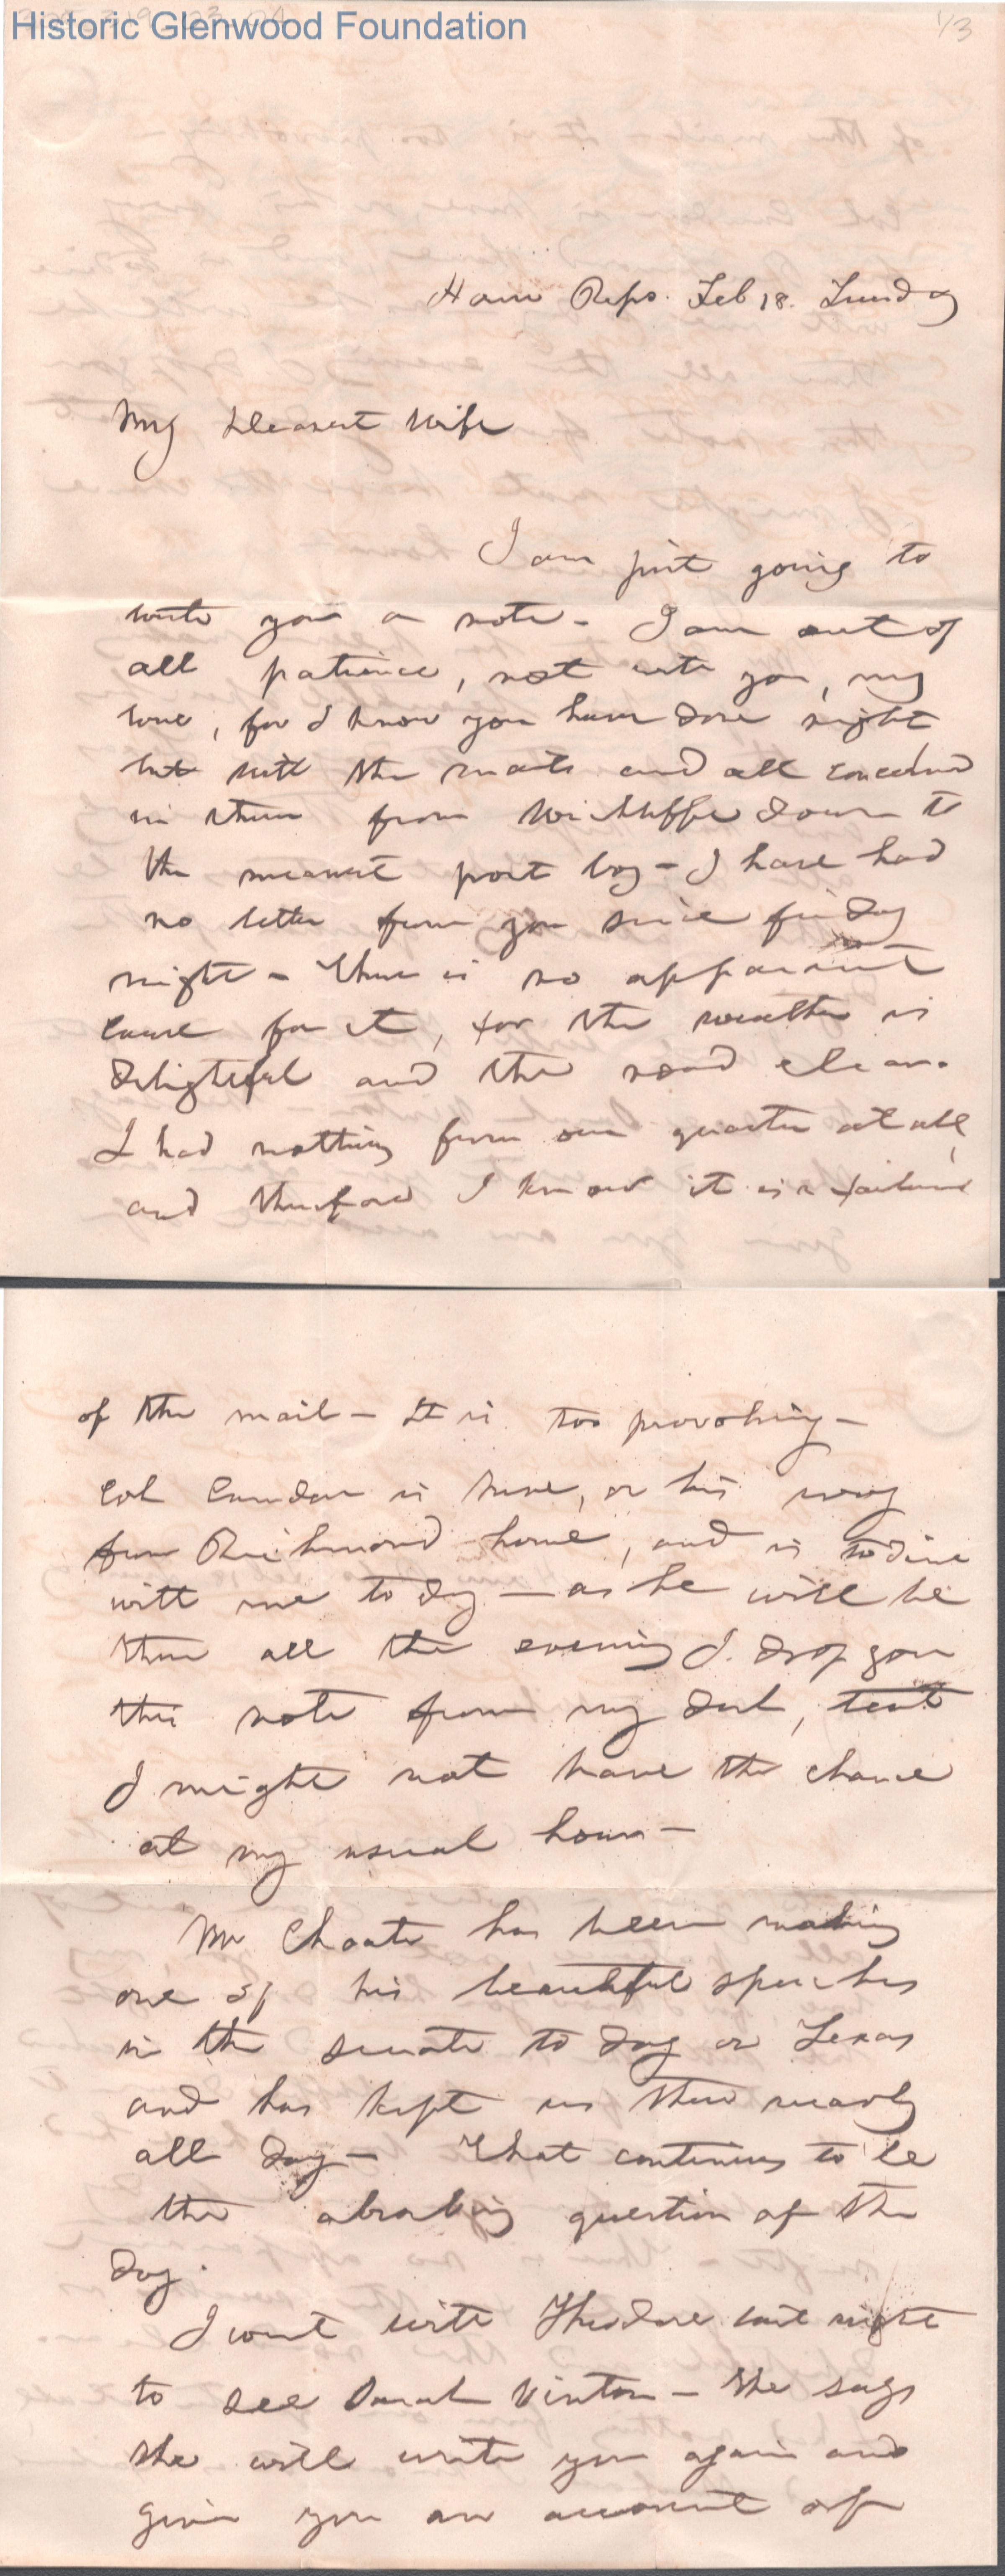 Historic Glenwood Foundation
1/3
House Reps. Feb 18. Tuesday
My Dearest Wife
I am just going to
write you a note - I am out of
all patience, not with you, my
love, for I know you have done right
but with the mails and all concerned
in them from Wickliffe down to
the meanest post boy - I have had
no letter from you since friday
night - There is no apparent
cause for it, for the weather is
delightful and the road clear.
I had nothing from our quarter at all,
and therefore I know it is a failure
of the mail - It is too provoking -
Col Camden is here, on his way
from Richmond home, and is to dine
with me to day - as he will be
there all the evening I drop you
this note from my desk,
I might not have the chance
at my usual hour -
Mr Choate has been making
one of his beautiful speeches
in the senate to day on Texas
and has kept us there nearly
all day - That continues to be
the absorbing question of the
day.
I went with Theodore last night
to see Sarah Vinton - She says
she will write you again and
give you an account of